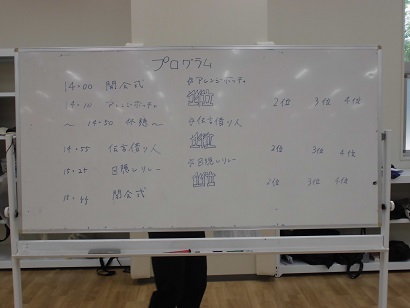 プログラム
14:00 開会式 ☆アレンジボッチャ
14:10 アレンジボッチャ 2位 3位 4位
〜 14:50 休憩〜 ☆伝言借り人
14:55 伝言借り人 2位 3位 4位
15:25 目隠しリレー ☆目隠しリレー
15:44 閉会式 2位 3位 4位